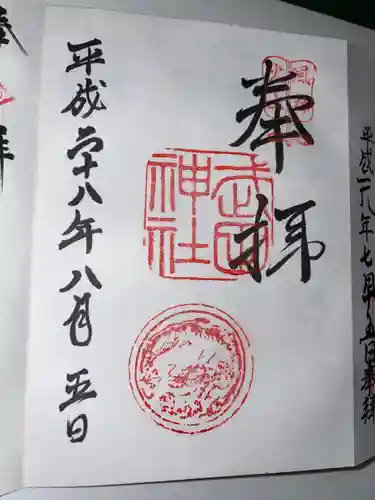 平成一八年七月五日奉拝
奉拝
武田神社
平成二十八年八月五日
拝